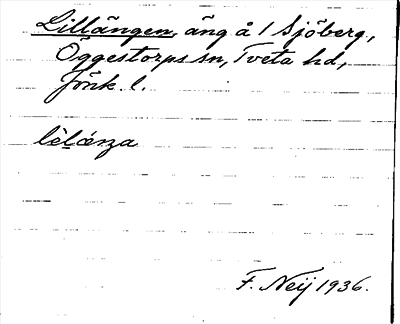 Lillängen, äng å 1 Sjöberg,
Öggestorps sn, Tveta hd,
Jönk. l.
lèlǽnza
F. Neij 1936.